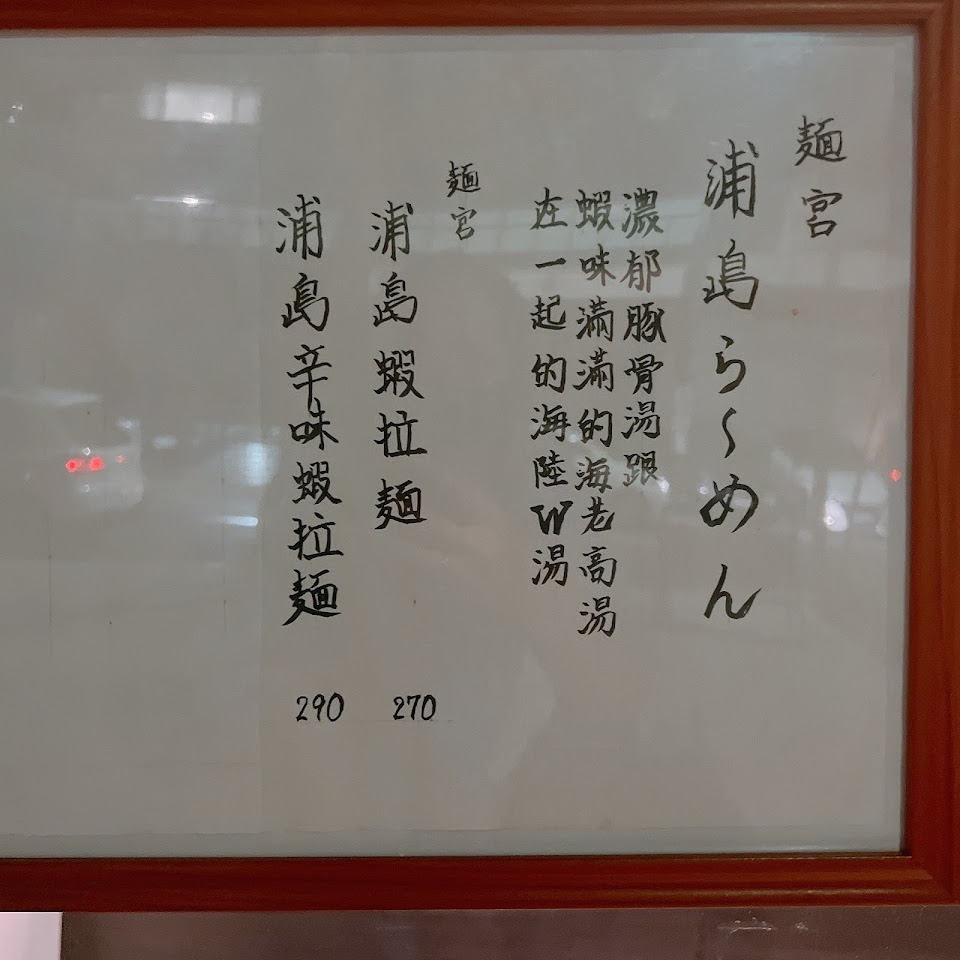 麺宮
浦島ら〜めん
濃郁豚骨湯跟
蝦味滿滿的海老高湯
在一起的海陸W湯
麺宮
浦島蝦拉麵
270
浦島辛味蝦拉麵
290